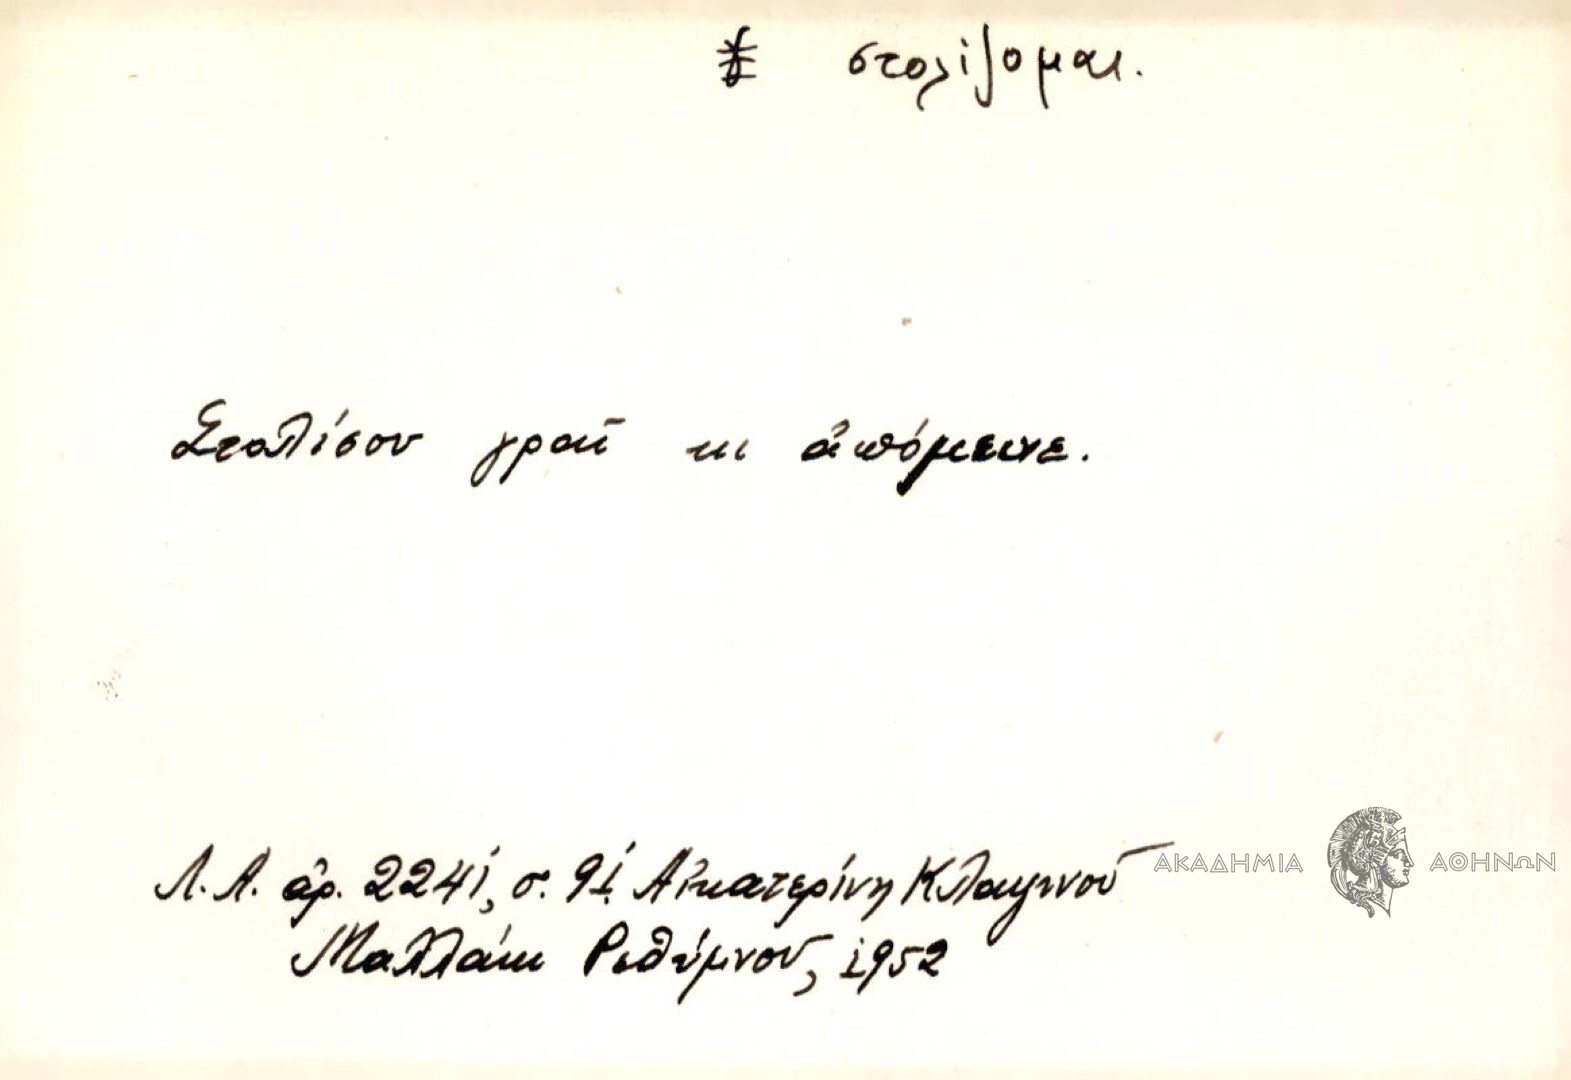 στολίζομαι.
Στολίσου γραῖ κι ἀπόμεινε.
Λ.Α. ἀρ. 2241, σ. 91 Αἰκατερίνη
Μαλλάκι Ρεθύμνου, 1952
ΑΚΑΔΗΜΙΑ ΑΘΗΝΩΝ